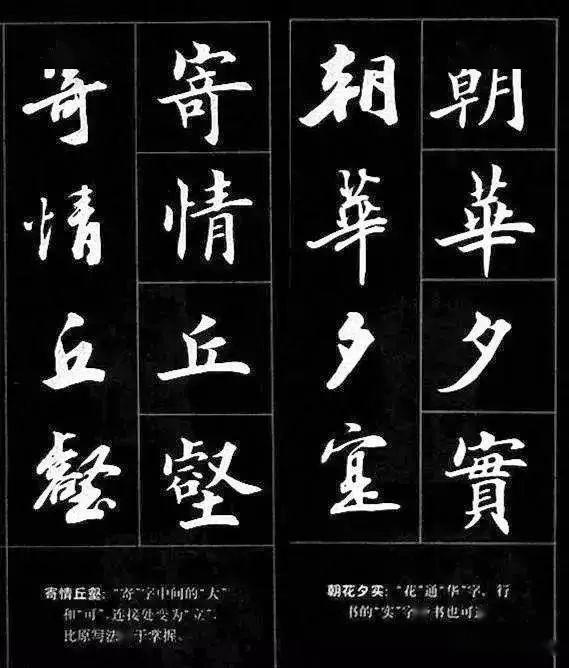 朝華夕實
朝華夕寔
寄情丘壑
寄情丘壑
朝花夕实:“花”通“华”字,行
书的“实”字 书也可
寄情丘壑:“寄”字中间的“大”
和“可”,连接处变为“立”,
比原写法 于掌握、